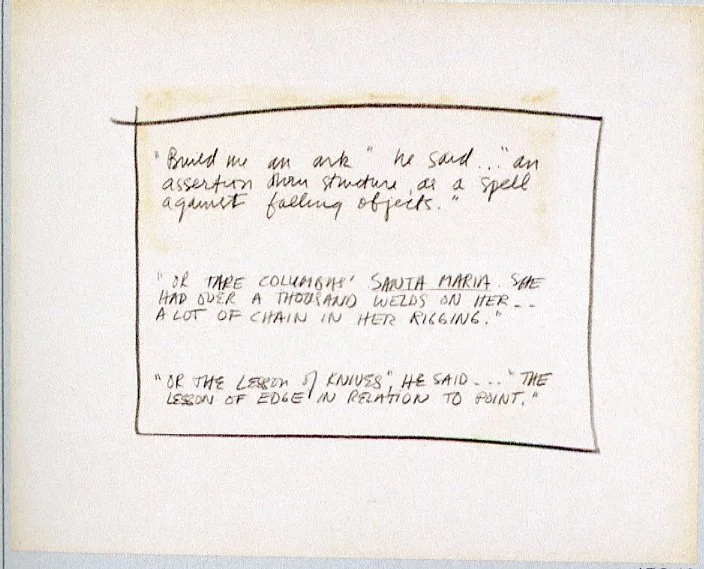 "Build me an ark" he said..." an
assertion thru structure, as a spell
against falling objects."
"OR TAKE COLUMBUS' SANTA MARIA. SHE
HAD OVER A THOUSAND WELDS ON HER--
A LOT OF CHAIN IN HER RIGGING."
"OR THE LESSON of KNIVES", HE SAID---"THE
LESSON OF EDGE IN RELATION TO POINT."